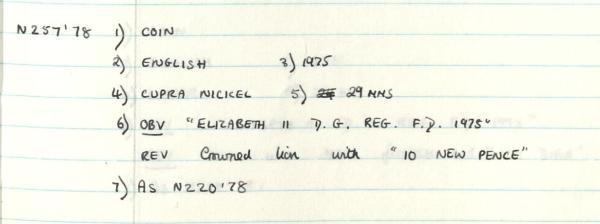 N257'78 1) COIN
2) ENGLISH 3) 1975
4) CUPRA NICKEL 5) 29 MMS
6) OBV "ELIZABETH II D.G. REG. F.D. 1975"
REV Crowned lion with "10 NEW PENCE"
7) As N220'78